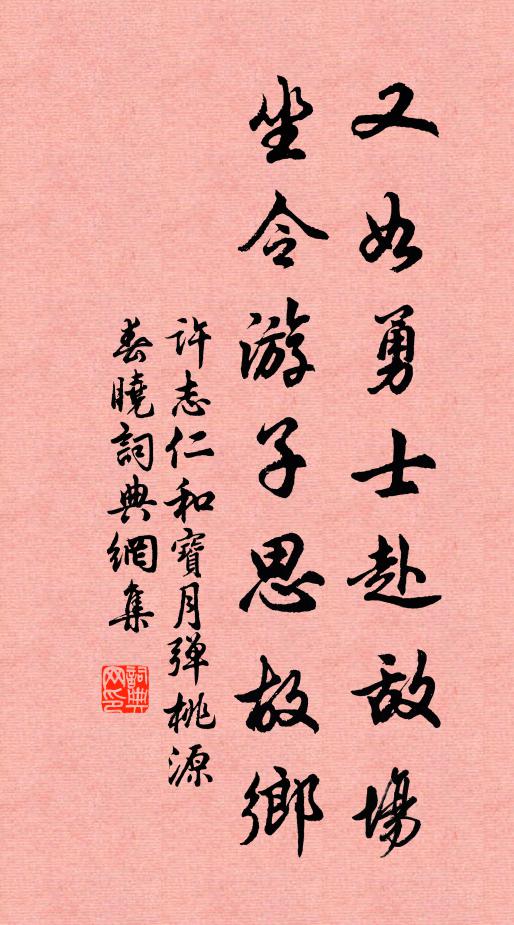 又如勇士赴敌場
坐令游子思故鄉
許志仁和寶月弹桃源
春曉詞典網集
詞典网印